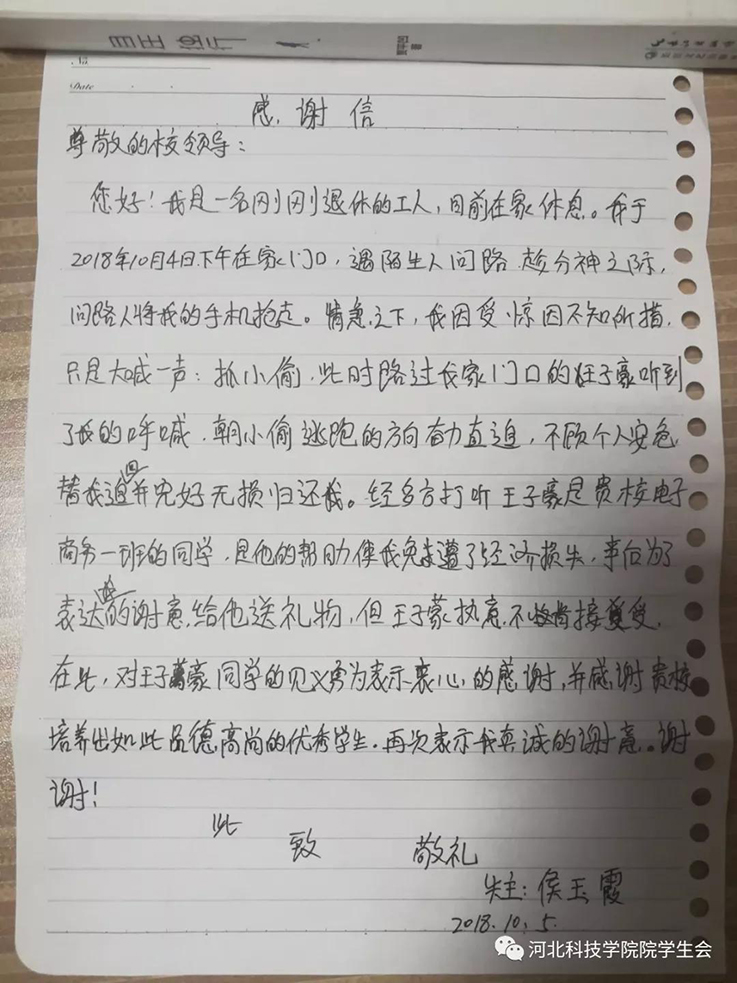 自在独行
贾平凹 著
No
Date
感谢信
尊敬的校领导：
您好！我是一名刚刚退休的工人，目前在家休息。我于
2018年10月4日下午在家门口，遇陌生人问路 趁分神之际，
问路人将我的手机抢走。情急之下，我因受惊因不知所措，
只是大喊一声：抓小偷，此时路过我家门口的王子豪听到
了我的呼喊，朝小偷逃跑的方向奋力直追，不顾个人安危
替我追回并完好无损归还我。经多方打听王子豪是贵校电子
商务一班的同学，是他的帮助使我免遭了经济损失，事后为了
表达我的谢意，给他送礼物，但王子豪执意不肯接受，
在此，对王子豪同学的见义勇为表示衷心的感谢，并感谢贵校
培养出如此品德高尚的优秀学生，再次表示我真诚的谢意。谢
谢！
此 致 敬礼
失主：侯玉霞
2018.10.5.
河北科技学院院学生会